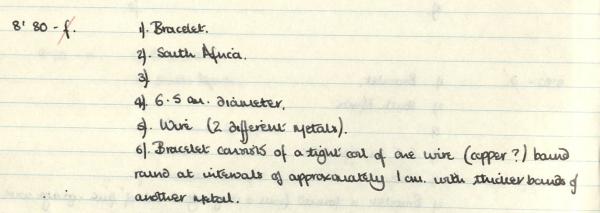 8'80 - f.
1). Bracelet.
2). South Africa.
3)
4). 6.5 cm. diameter.
5). Wire (2 different metals).
6). Bracelet consists of a tight coil of one wire (copper?) bound
round at intervals of approximately 1 cm. with thicker bands of
another metal.